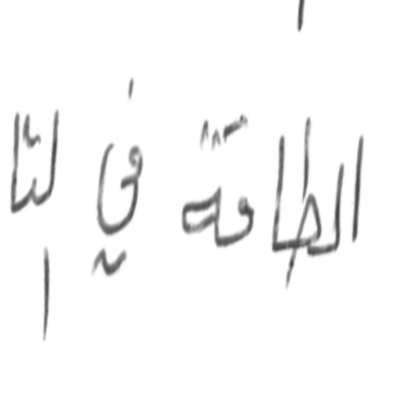 الطاقة في لتا